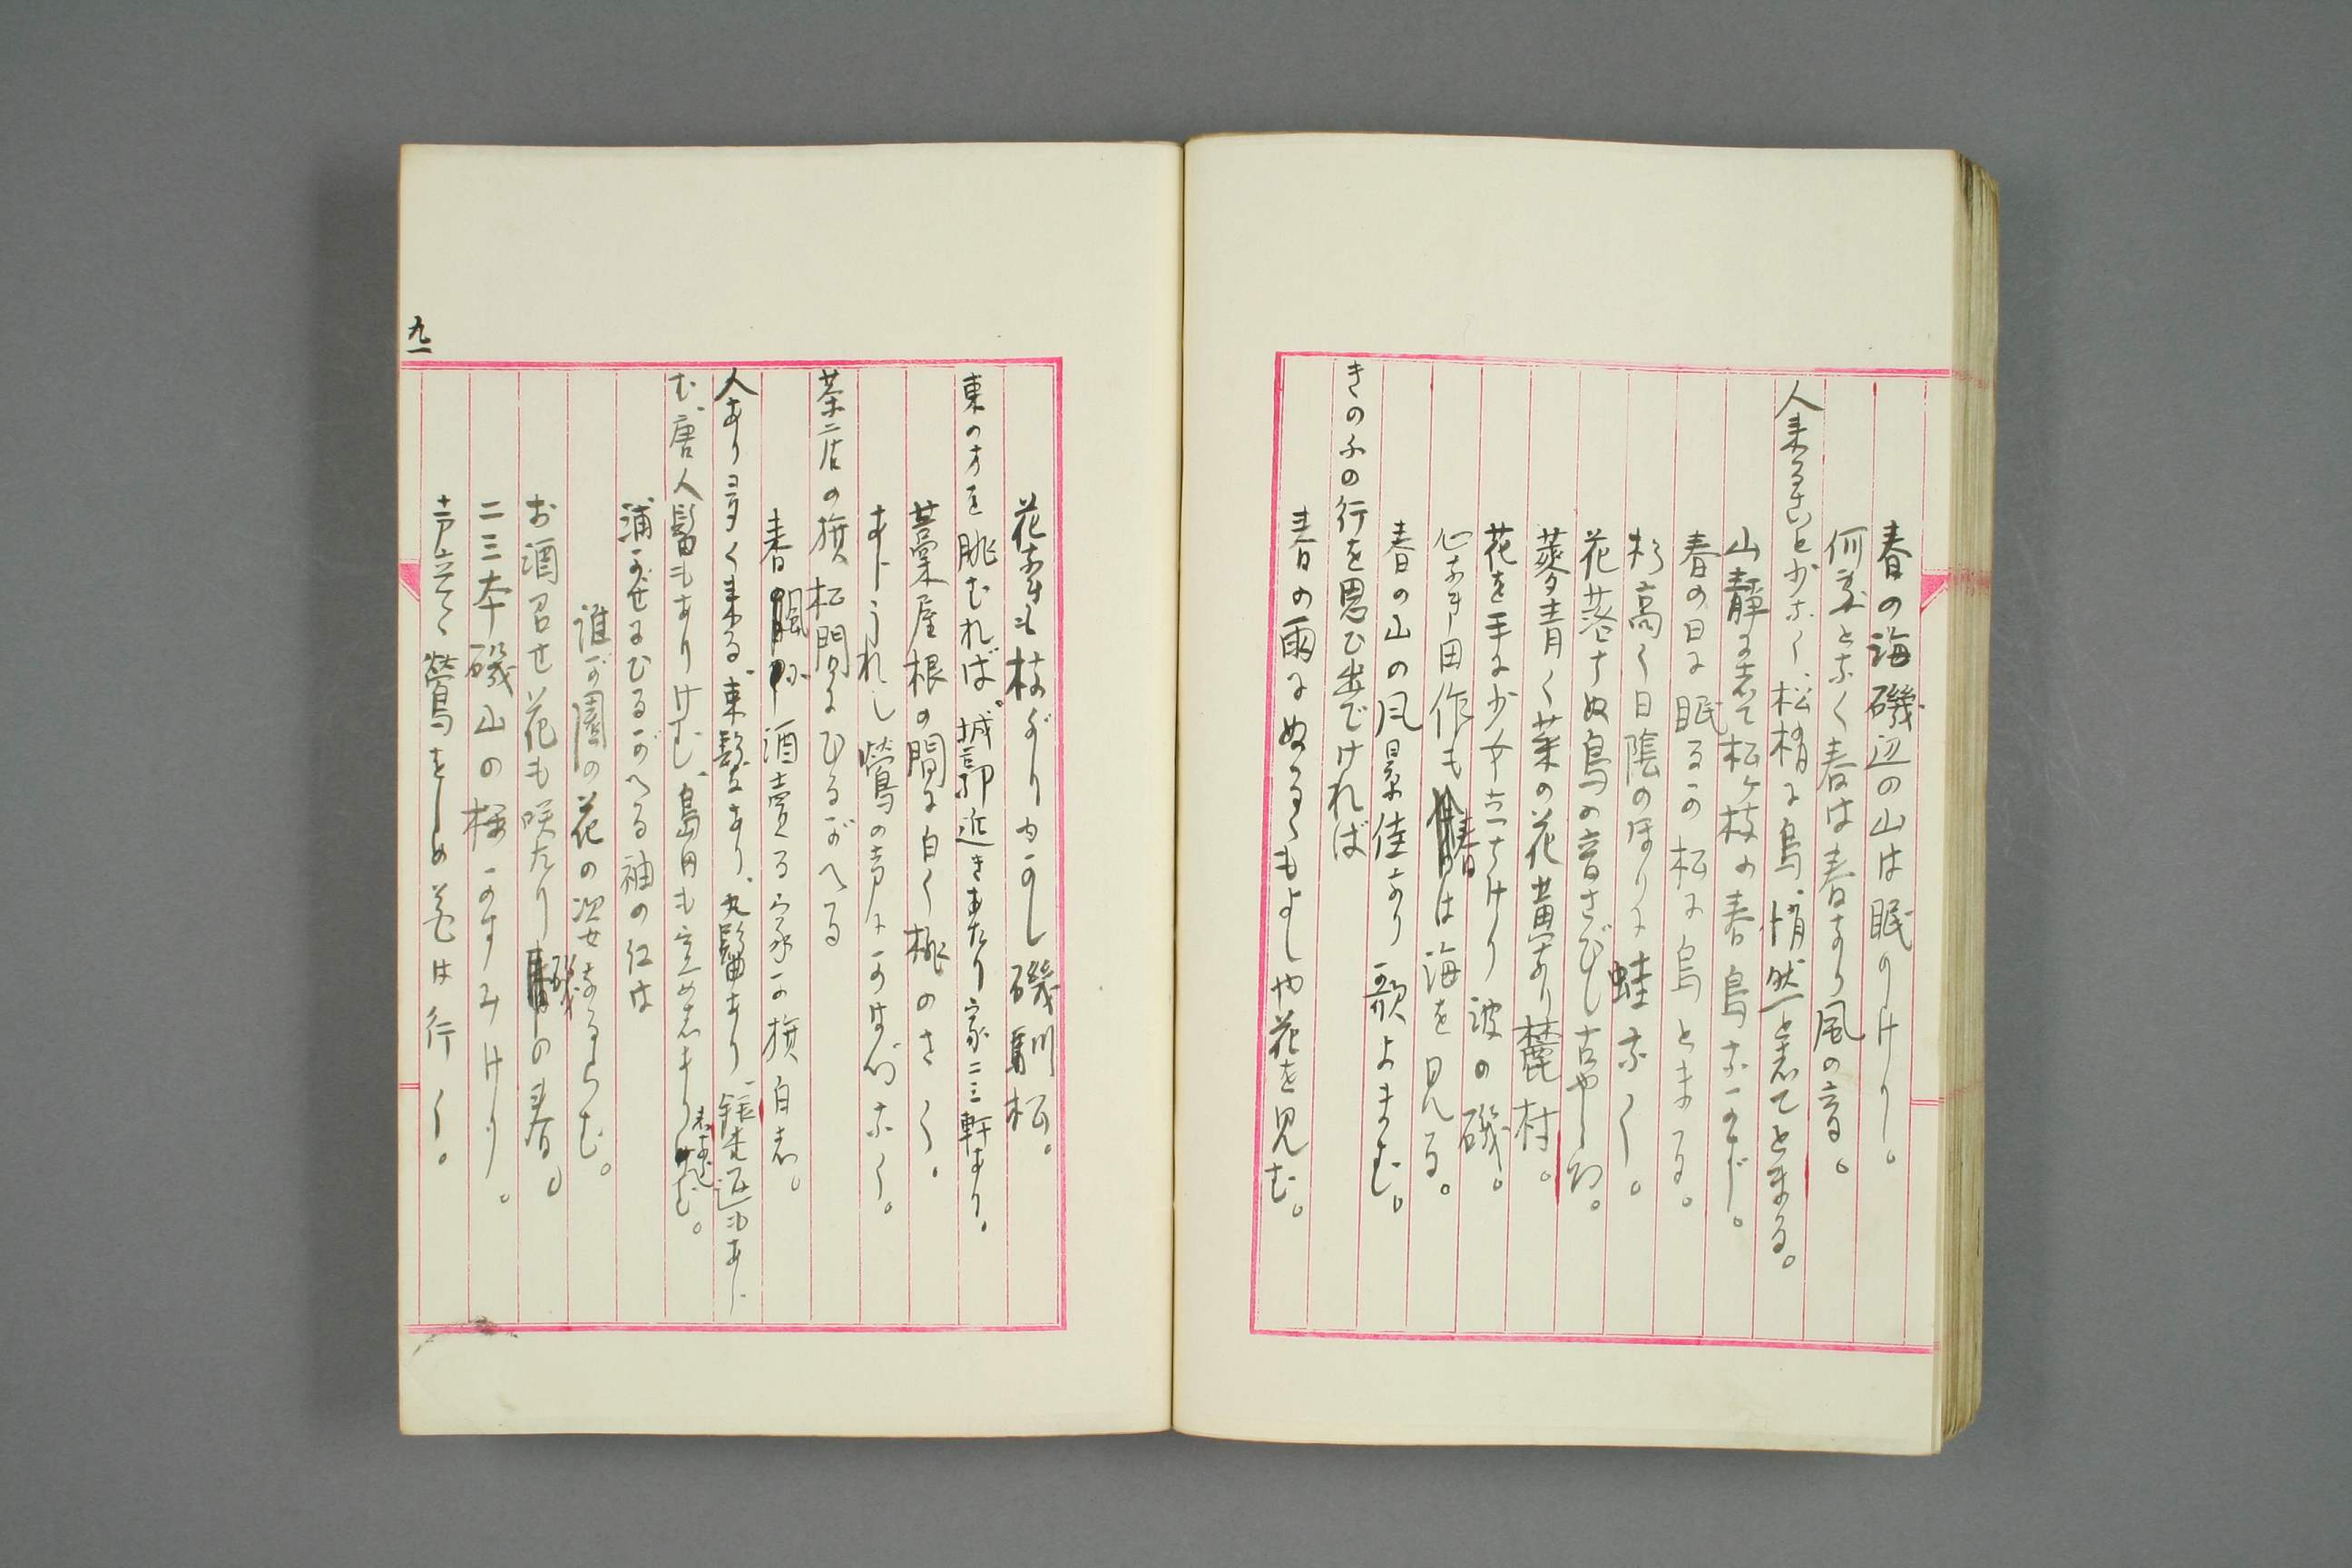 春の海磯辺の山は眠りけり。
何文となく春は春なり風の音。
人来ること少なく、松梢に烏、悄然と老てとまる。
山静に老て松ヶ枝の春烏なかず。
春の日に眠るか松に烏とまる。
杉高く日陰のほりに蛙なく。
花落さぬ鳥の音さびし古やしろ。
菱青く菜の花黄なり麓村。
花を手に少女立ちけり波の磯。
心なき田作も春は海を見る。
春の山の風景佳なり歌よまむ。
きのふの行を思ひ出でければ
春の雨にぬるゝもよしや花を見む。
花なきも枝ぶりゆかし磯馴松。
東の方を眺むれば、城郭近きあたり家二三軒あり。
藁屋根の間に白く桃のさく。
すこしうれし鶯の声にかはづなく。
茶店の旗松間にひるがへる
春風や酒売る家の旗白き。
人あり多く来る、束髪あり、丸髷あり、銀杏返もあら
む、唐人髷もありけむ、島田も定めしありけむ。
浦かぜにひるがへる袖の紅は
誰が園の花の姿なるらむ。
お酒召せ花も咲たり磯の春。
二三本磯山の桜かすみけり。
声立てゝ鶯をしめ花は行く。
九一